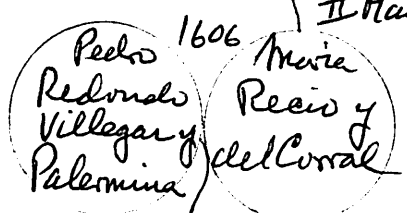 II Ma
1606
Pedro
Redondo
Villegas y
Palermina
Maria
Recio y
del Corral